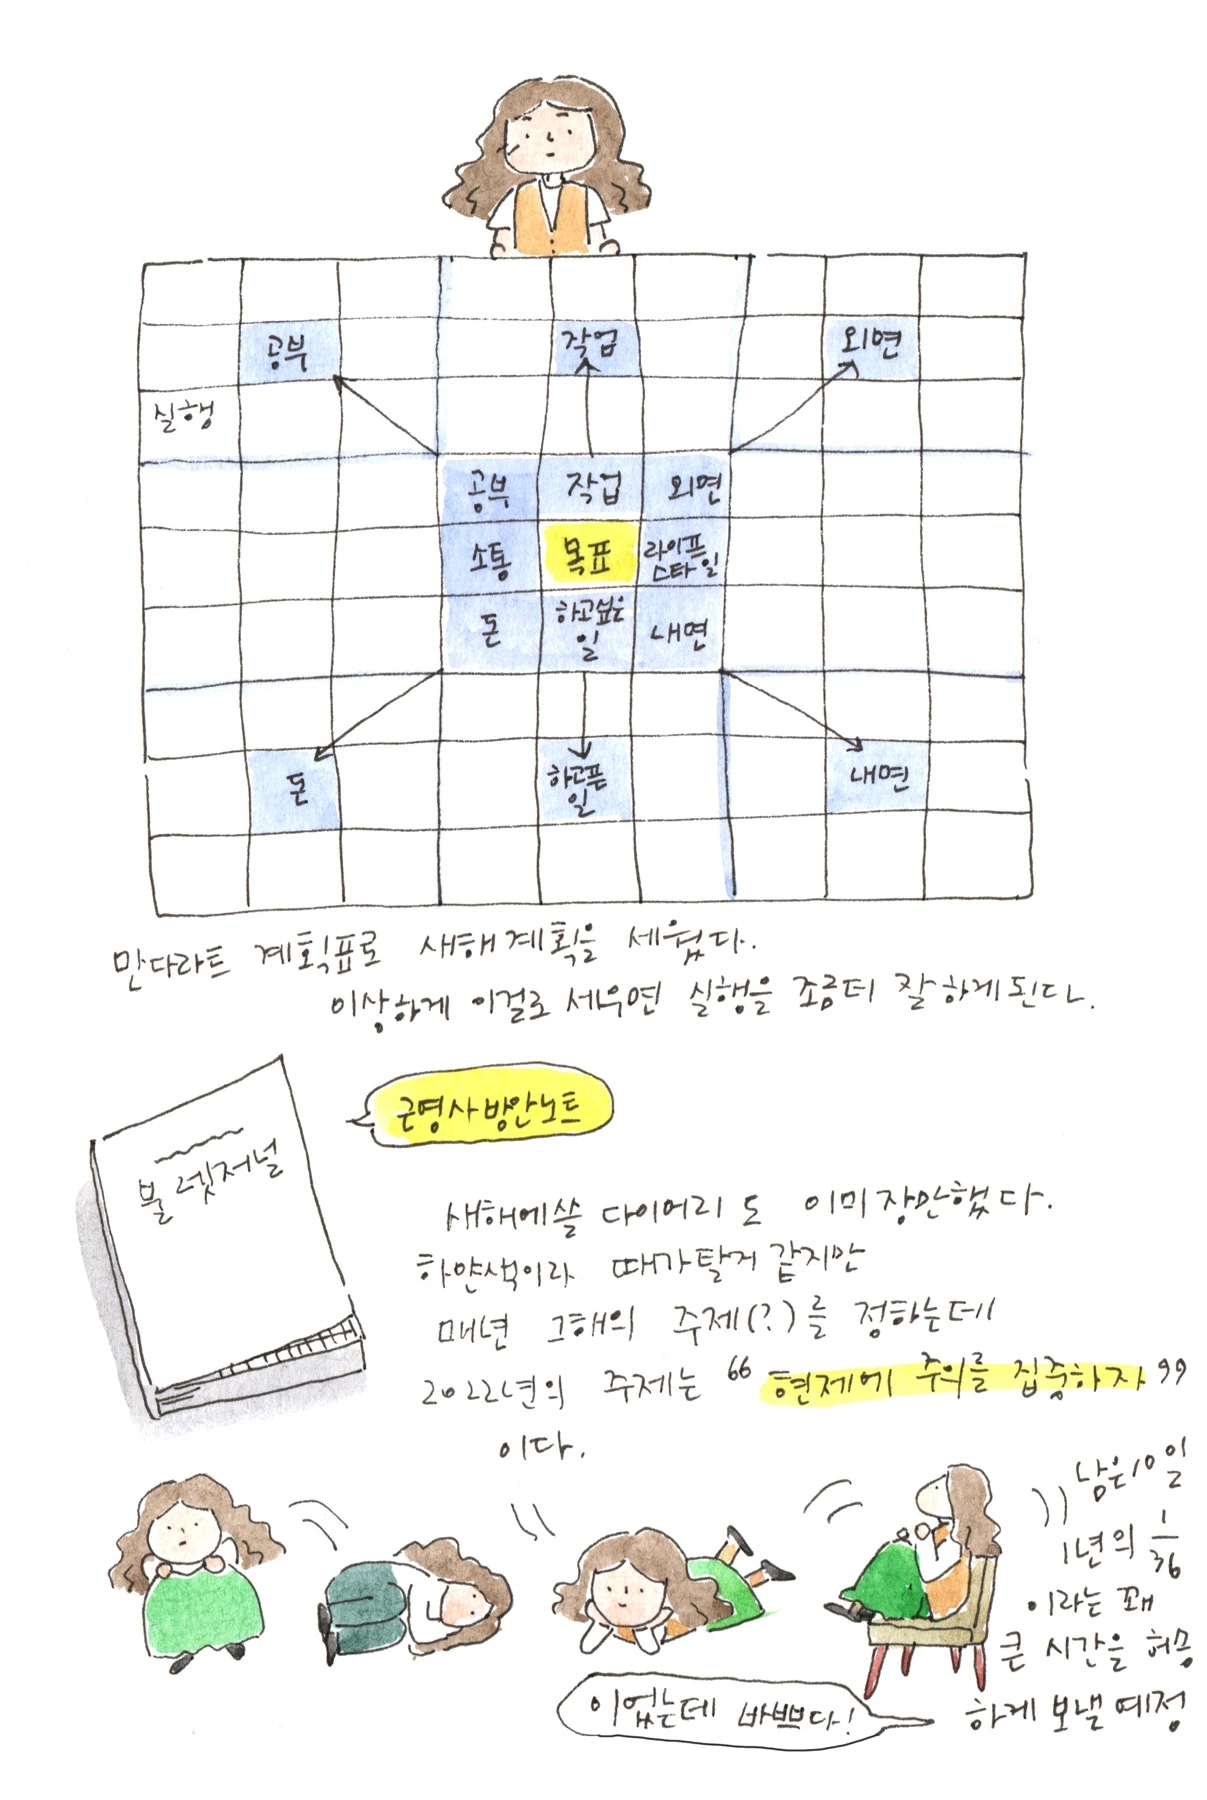 공부 작업 외면
실행
공부 작업 외면
소통 목표 라이프
스타일
돈 하고싶은
일 내면
돈 하고픈
일 내면
만다라트 계획표로 새해계획을 세웠다.
이상하게 이걸로 세우면 실행을 조금 더 잘하게된다.
불렛저널
근영사방안노트
새해에쓸 다이어리도 이미 장만했다.
하얀색이라 때가탈거 같지만
매년 그해의 주제(?)를 정하는데
2022년의 주제는 “현재에 주의를 집중하자”
이다.
남은10일
1년의 1/36
이라는 꽤
큰 시간을 허송
하게 보낼 예정
이었는데 바쁘다!